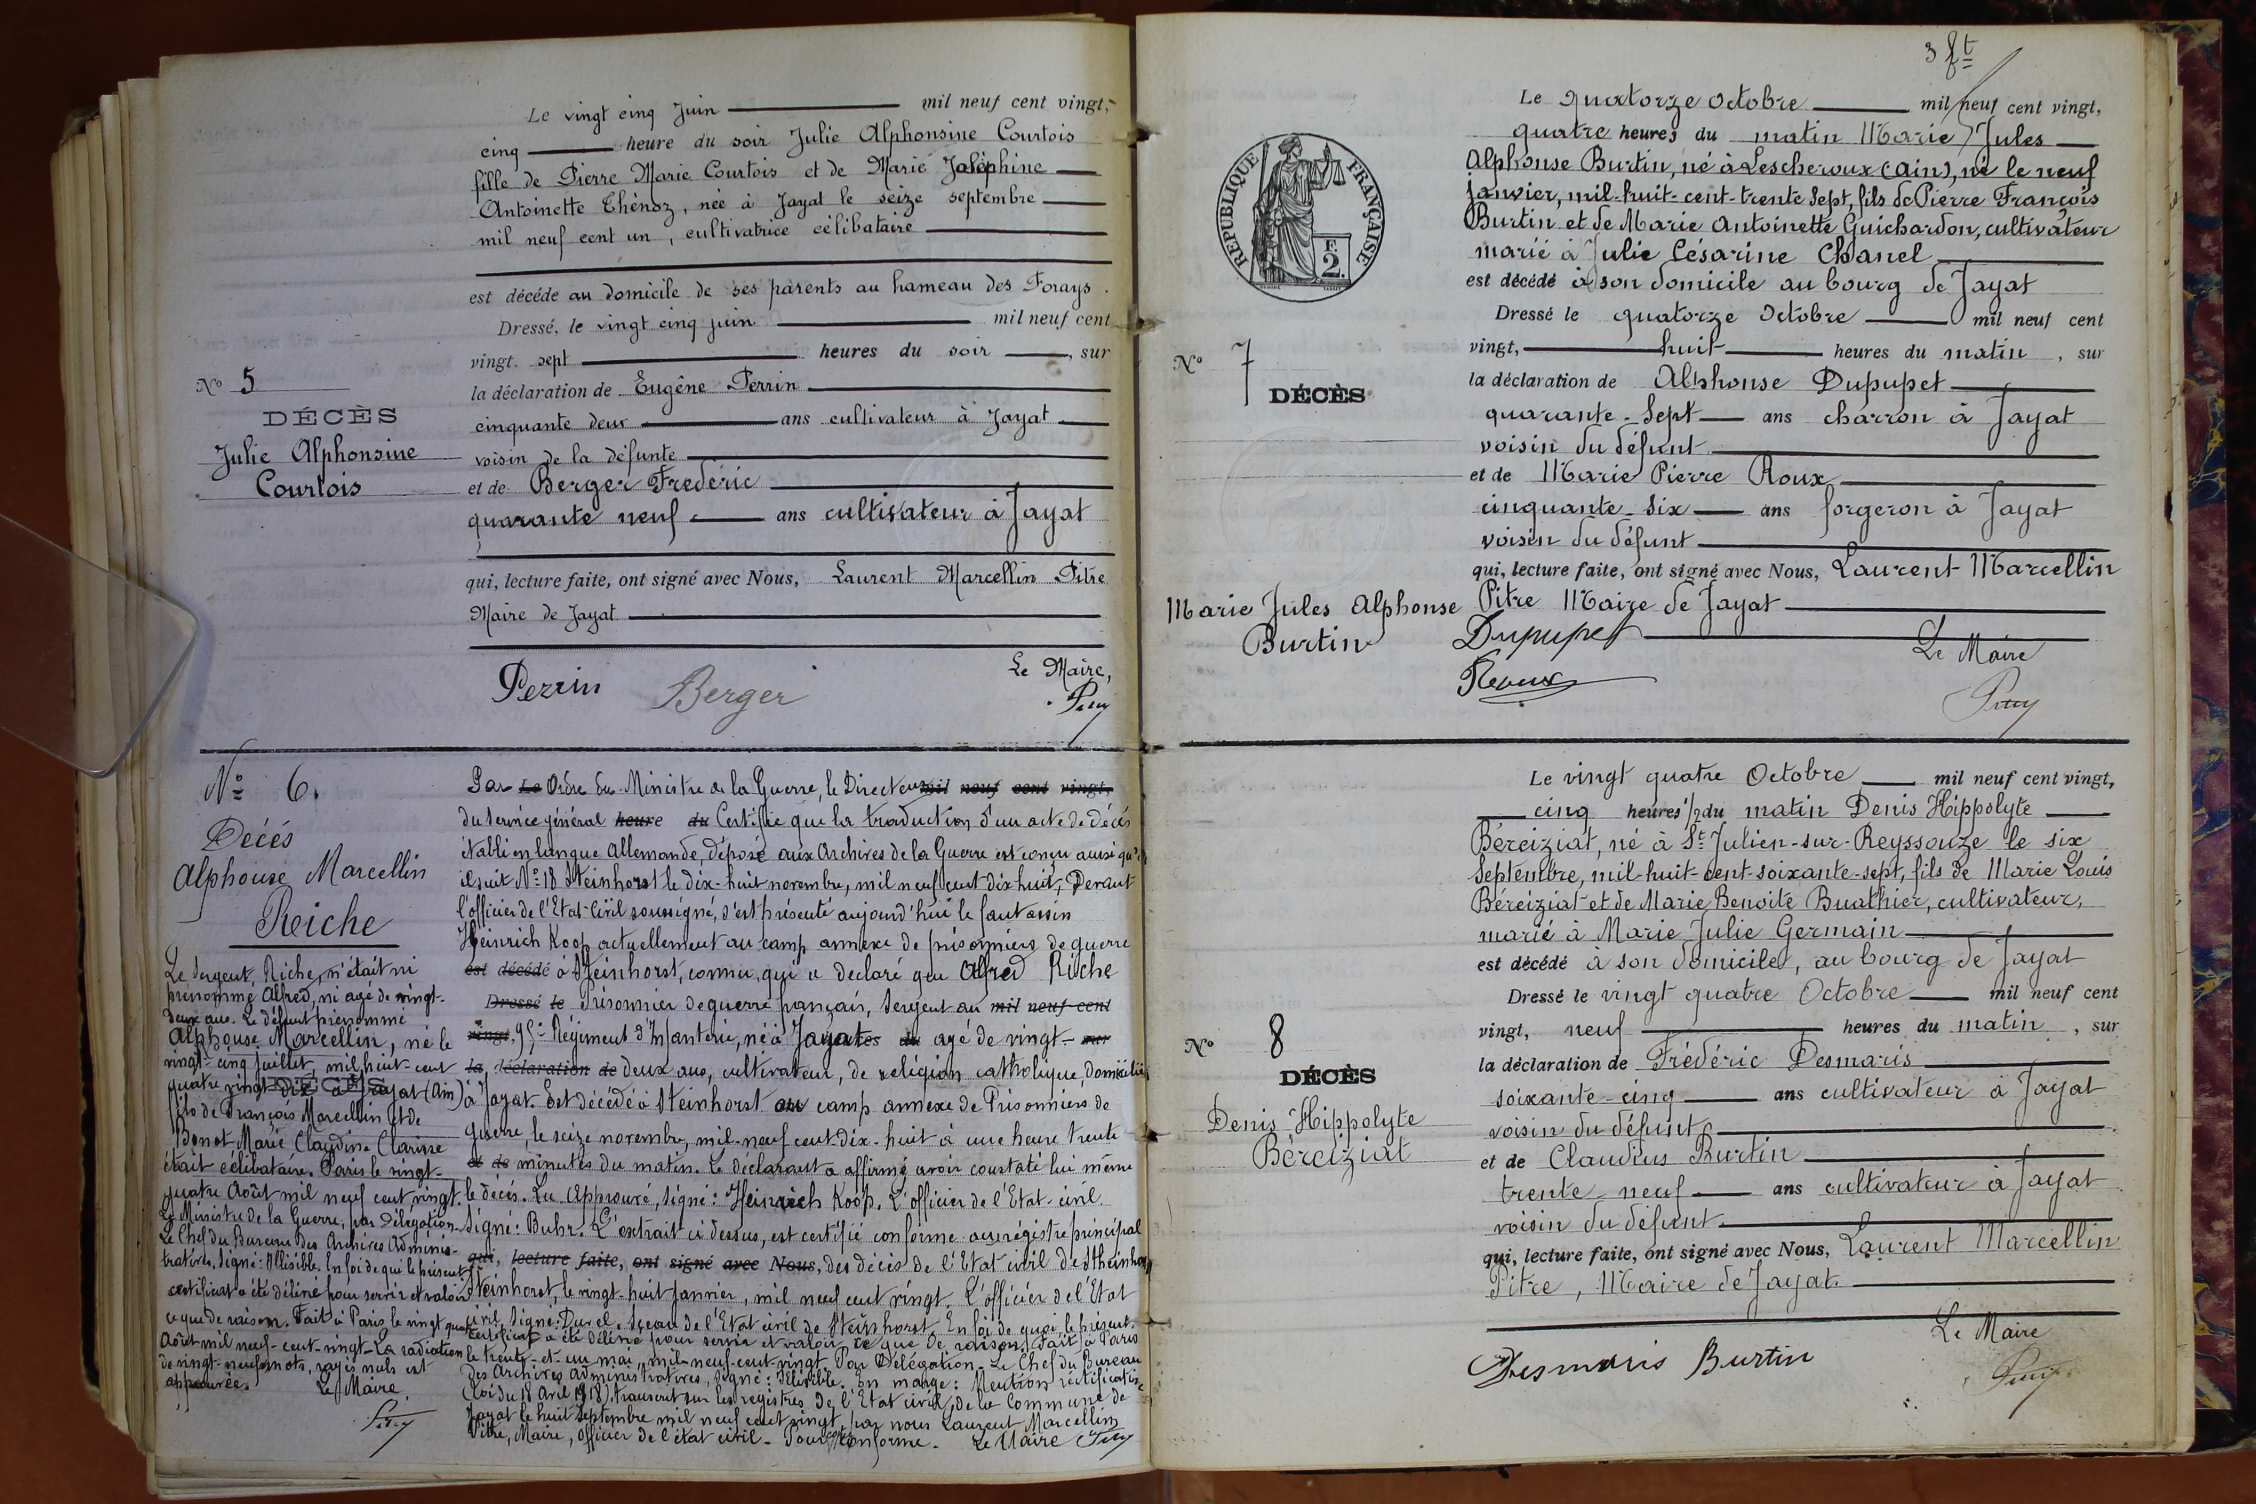 Le vingt cinq Juin mil neuf cent vingt,
cinq heure du soir Julie Alphonsine Courtois
fille de Pierre Marie Courtois et de Marie Joséphine
Antoinette Thénoz, née à Jayat le seize septembre
mil neuf cent un, cultivatrice célibataire
est décédé au domicile de ses parents au hameau des Forays.
Dressé, le vingt cinq juin mil neuf cent
vingt. sept heures du soir, sur
la déclaration de Eugène Perrin
cinquante deux ans cultivateur à Jayat
voisin de la défunte
et de Berger Frédéric
quarante neuf ans cultivateur à Jayat
qui, lecture faite, ont signé avec Nous, Laurent Marcellin Pitre
Maire de Jayat
Perrin Berger Le Maire,
No 5
DÉCÈS
Julie Alphonsine
Courtois
No 6.
Décés
Alphonse Marcellin
Reiche
Le Sergent Riche, n'était ni
prénommé Alfred, ni agé de vingt-
deux ans. Le défunt prénommé
Alphonse Marcellin, né le
vingt-cinq juillet, mil huit-cent
quatre vingt-dix à Jayat (Ain)
DÉCÈS
fils de François Marcellin et de
Bonot Marie Claudine Clarisse
était célibataire. Paris le vingt-
quatre Août mil neuf cent vingt.
Le Ministre de la Guerre, par délégation
Le Chef du Bureau des Archives Adminis-
tratives. Signé: Illisible. En foi de quoi le présent
certificat a été délivré pour servir et valoir
ce que de raison. Fait à Paris le vingt quatre
Août mil neuf-cent-vingt. La radiation
de vingt-neuf mots, rayés nuls est
approuvée. Le Maire
Par Le Ordre du Ministre de la Guerre, le Directeur mil neuf cent vingt,
du service général heure du Certifie que la traduction d'un acte de décés
établi en langue Allemande, déposé aux Archives de la Guerre est conçu ainsi qu'
il suit No 18 Steinhorst le dix-huit novembre, mil neuf cent dix huit, Devant
l'officier de l'Etat-Civil soussigné, s'est présenté aujourd'hui le fantassin
Heinrich Koop actuellement au camp annexe de prisonniers de guerre
est décédé à Steinhorst, connu, qui a déclaré que Alfred Riche
Dressé le Prisonnier de guerre français, Sergent au mil neuf cent
vingt, 95e Régiment d'Infanterie, né à Jayat du agé de vingt- sur
la déclaration de deux ans, cultivateur, de religion catholique, domicilié
à Jayat. Est décédé à Steinhorst au camp annexe de Prisonniers de
guerre, le seize novembre, mil-neuf cent dix-huit à une heure trente
et de minutes du matin. Le déclarant a affirmé avoir constaté lui même
le décés. Lu Approuvé, signé: Heinrich Koop. L'officier de l'Etat-civil
Signé: Buhr. L'extrait ci dessus, est certifié conforme au registre principal
qui, lecture faite, ont signé avec Nous, des décès de l'Etat civil de Stheinhorst
Steinhorst, le vingt-huit Janvier, mil neuf cent vingt. L'officier de l'Etat
civil, Signé: Durel. Sceau de l'Etat civil de Steinhorst. En foi de quoi le présent
certificat a été délivré pour servir et valoir ce que de raison. Fait à Paris
le trente-et-un mai, mil-neuf-cent-vingt. Par Délégation. Le Chef du Bureau
des Archives Administratives, signé: Illisible. En marge: Mention rectificative
(Loi du 18 Avril 1918) transcrit sur les registres de l'Etat civil, de la Commune de
Jayat le huit Septembre mil neuf cent vingt, par nous Laurent Marcellin
Pitre, Maire, officier de l'état civil. Pour copie conforme. Le Maire
3 ft
Le quatorze octobre mil neuf cent vingt,
quatre heures du matin Marie Jules
Alphonse Burtin, né à Lescheroux (Ain), né le neuf
janvier, mil-huit-cent-trente sept, fils de Pierre François
Burtin et de Marie Antoinette Guichardon, cultivateur
marié à Julie Césarine Chanel
est décédé à son domicile au bourg de Jayat
Dressé le quatorze Octobre mil neuf cent
vingt, huit heures du matin, sur
la déclaration de Alphonse Dupupet
quarante-sept ans charron à Jayat
voisin du défunt
et de Marie Pierre Roux
cinquante-six ans forgeron à Jayat
voisin du défunt
qui, lecture faite, ont signé avec Nous, Laurent Marcellin
Pitre Maire de Jayat
Dupupet Le Maire
Roux
RÉPUBLIQUE FRANÇAISE
F.
2.
No 7
DÉCÈS
Marie Jules Alphonse
Burtin
Le vingt quatre Octobre mil neuf cent vingt,
cinq heures 1/2 du matin Denis Hippolyte
Béreiziat, né à St Julien-sur-Reyssouze le six
Septembre, mil-huit-cent-soixante-sept, fils de Marie Louis
Béreiziat et de Marie Benoite Buathier, cultivateur,
marié à Marie Julie Germain
est décédé à son domicile, au bourg de Jayat
Dressé le vingt quatre Octobre mil neuf cent
vingt, neuf heures du matin, sur
la déclaration de Frédéric Desmaris
soixante-cinq ans cultivateur à Jayat
voisin du défunt
et de Claudius Burtin
trente neuf ans cultivateur à Jayat
voisin du défunt
qui, lecture faite, ont signé avec Nous, Laurent Marcellin
Pitre, Maire de Jayat.
Le Maire
Desmaris Burtin
No 8
DÉCÈS
Denis Hippolyte
Béreiziat